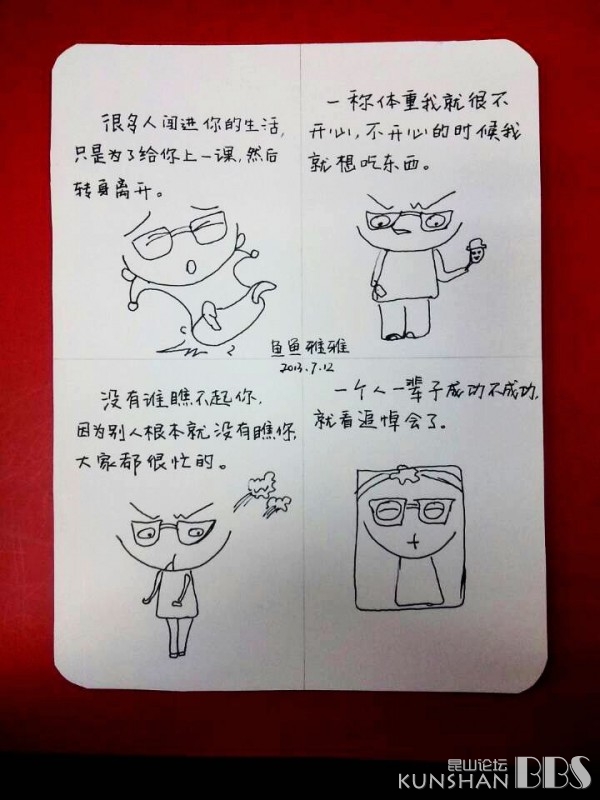 很多人闯进你的生活,
只是为了给你上一课,然后
转身离开。
一称体重我就很不
开心,不开心的时候我
就想吃东西。
鱼鱼雅雅
2013.7.12
没有谁瞧不起你,
因为别人根本就没有瞧你,
大家都很忙的。
一个人一辈子成功不成功,
就看追悼会了。
昆山论坛
KUNSHAN BBS